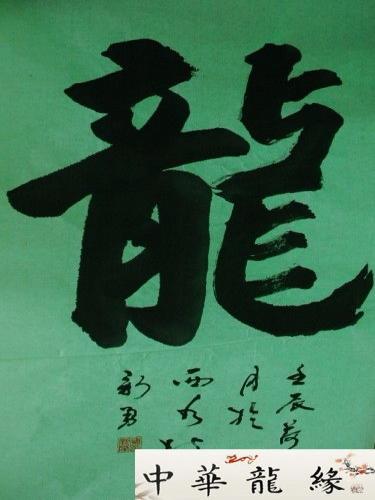 龍
壬辰荷
月於
西
新勇
中華龍緣